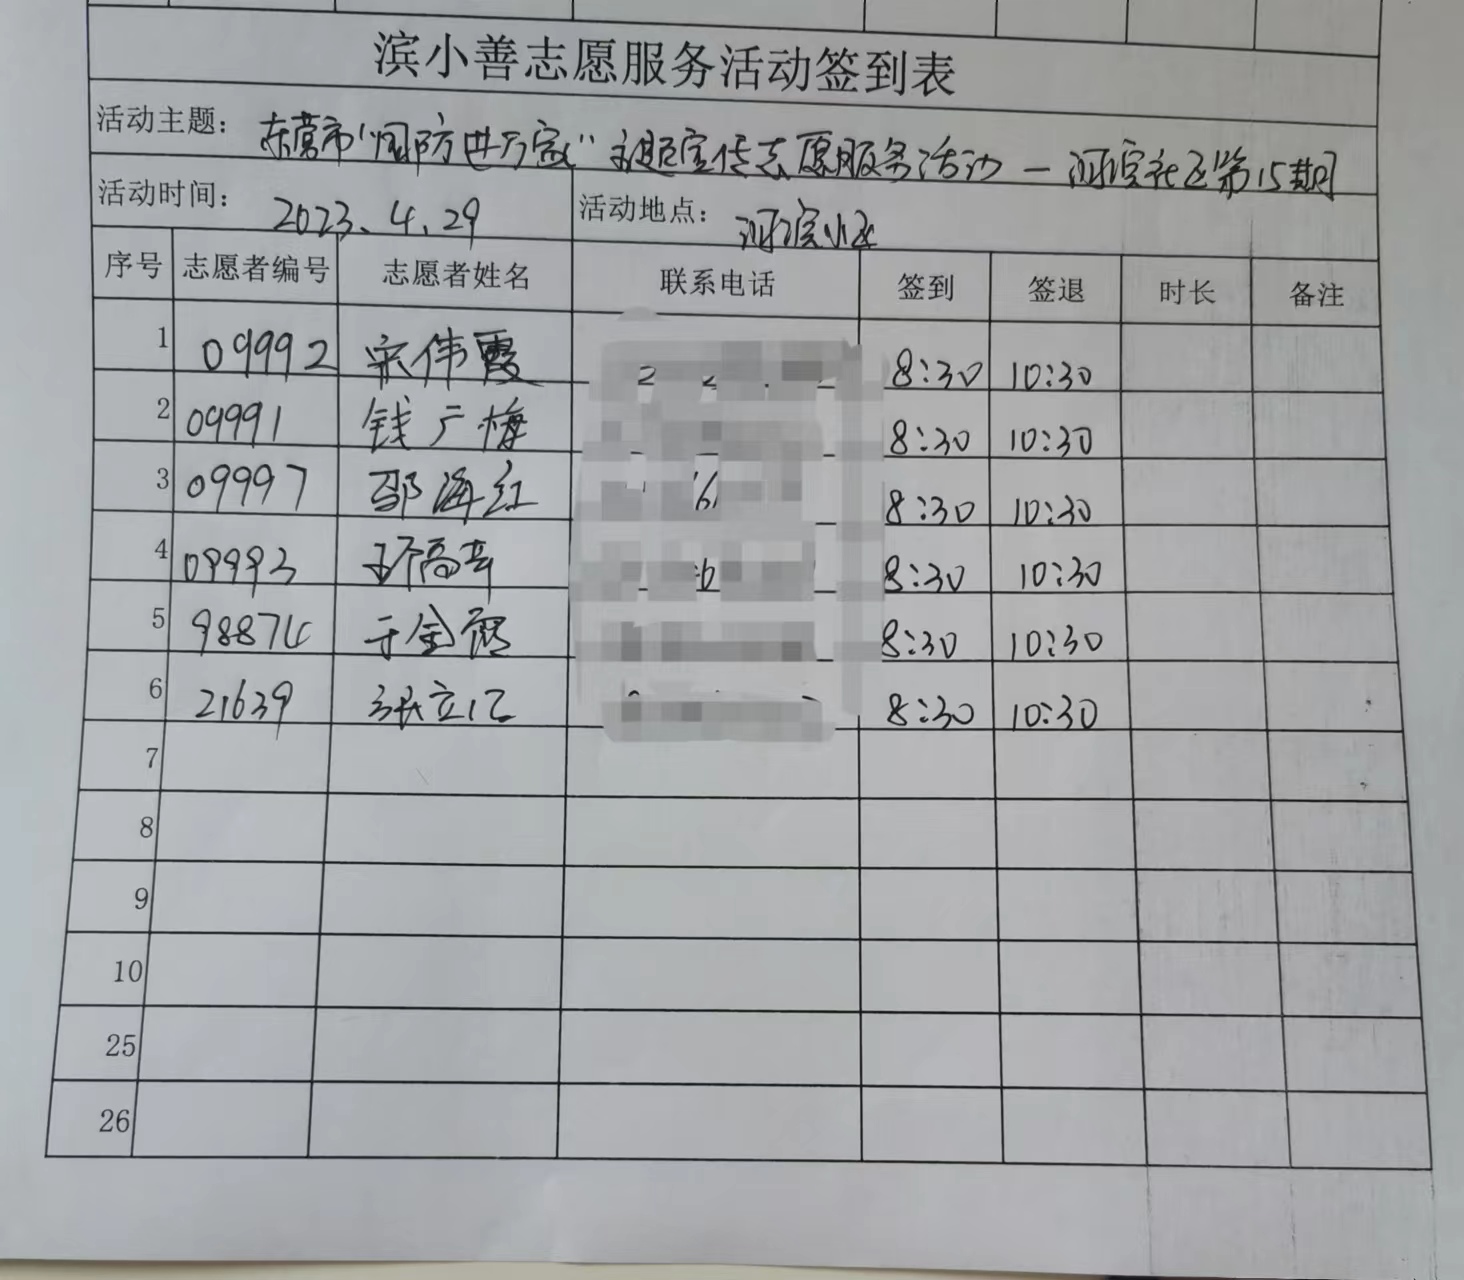 滨小善志愿服务活动签到表
活动主题：东营市"国防进万家"主题宣传志愿服务活动—河滨社区第15期
活动时间：2023.4.29 活动地点：河滨小区
序号 志愿者编号 志愿者姓名 联系电话 签到 签退 时长 备注
1 09992 宋伟霞 8:30 10:30
2 09991 钱广梅 8:30 10:30
3 09997 邵海红 8:30 10:30
4 09993 8:30 10:30
5 98874 于金 8:30 10:30
6 21639 张立仁 8:30 10:30
7
8
9
10
25
26